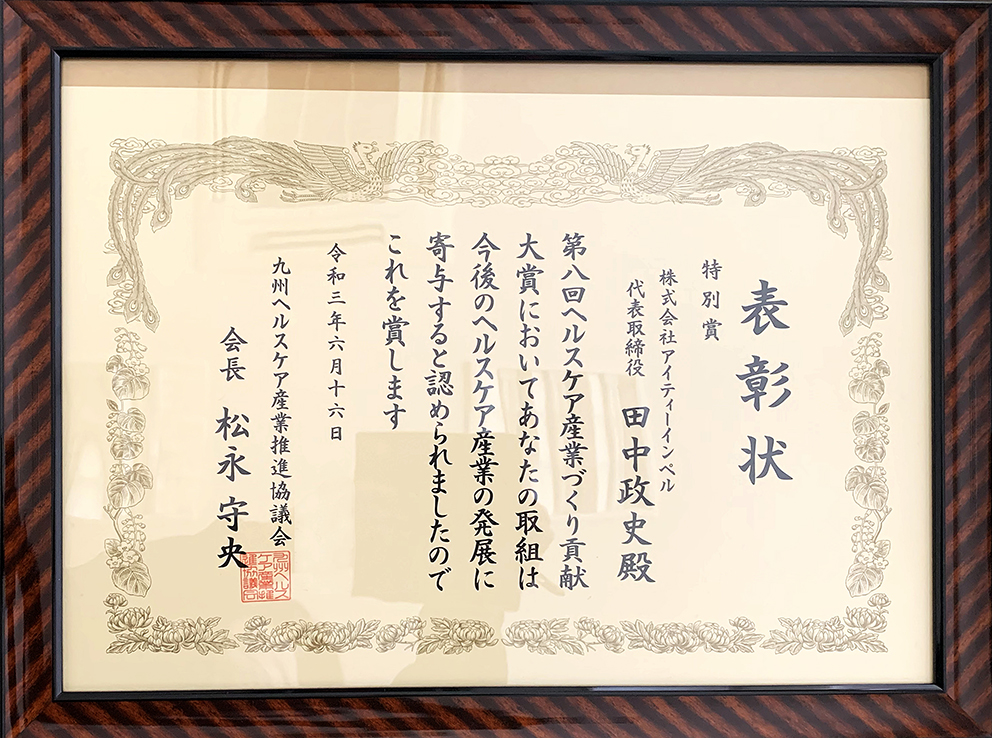 表彰状
特別賞
株式会社アイティーインペル
代表取締役 田中政史殿
第八回ヘルスケア産業づくり貢献
大賞においてあなたの取組は
今後のヘルスケア産業の発展に
寄与すると認められましたので
これを賞します
令和三年六月十六日
九州ヘルスケア産業推進協議会
会長 松永守央